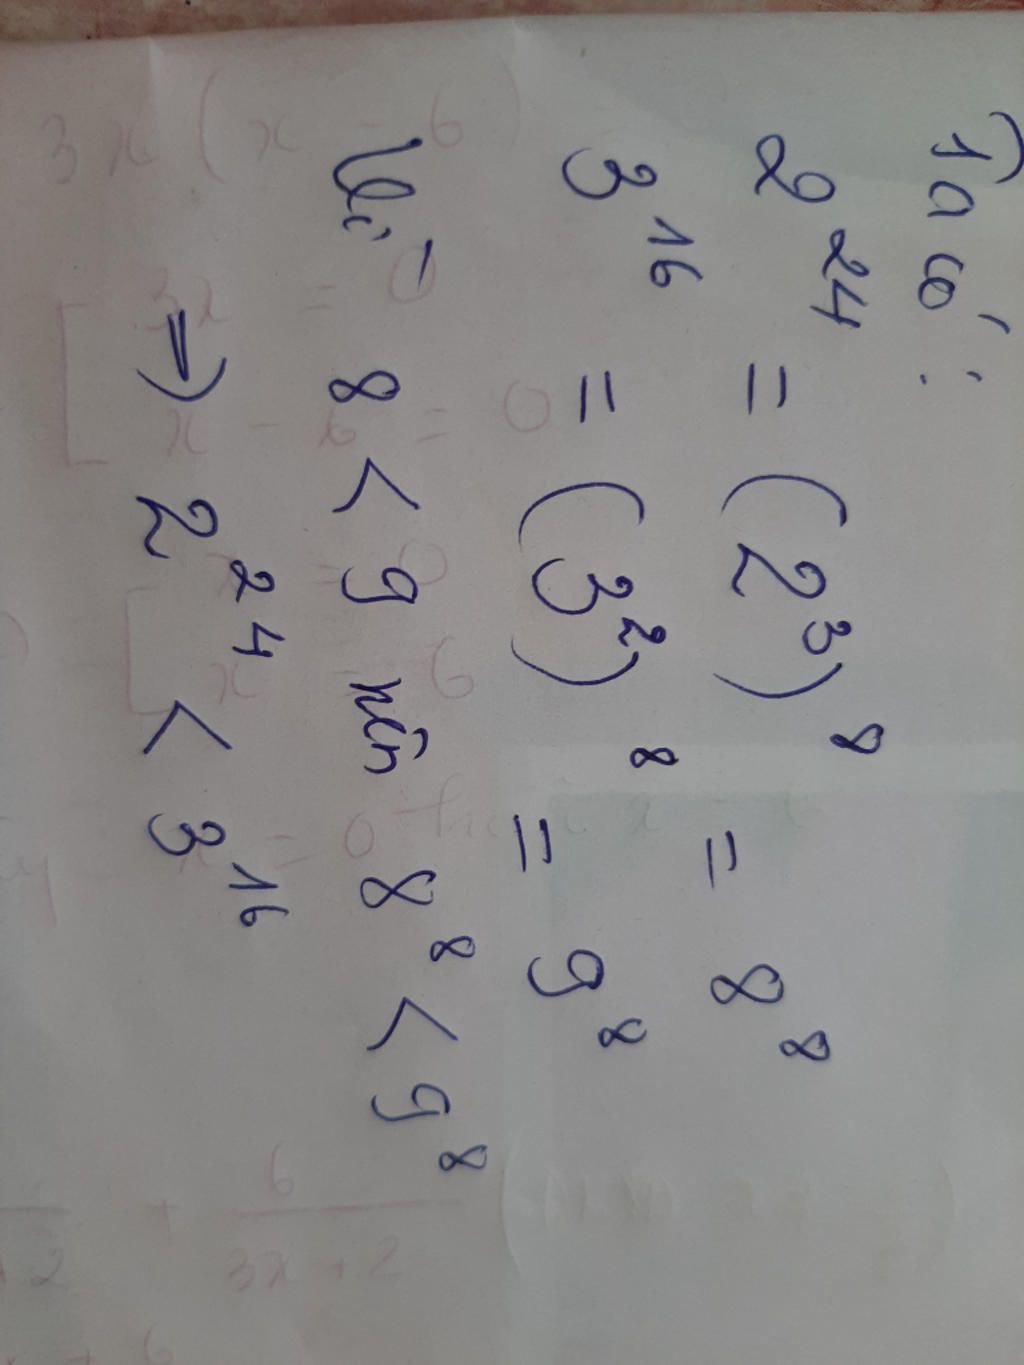 Ta có:
2^24 = (2^3)^8 = 8^8
3^16 = (3^2)^8 = 9^8
Vì 8 < 9 nên 8^8 < 9^8
⇒ 2^24 < 3^16